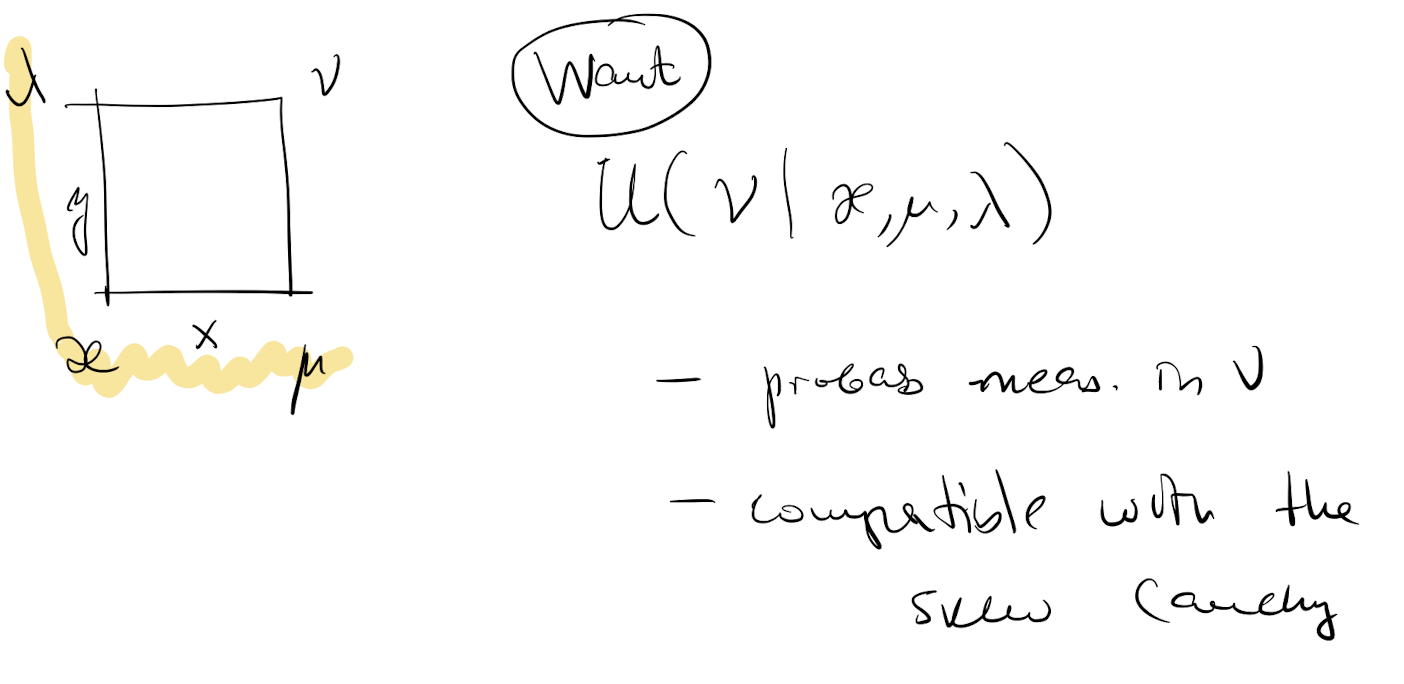 λ ν
Want
y
U( ν | ϰ, μ, λ )
x
ϰ μ
— probab meas. in ν
— compatible with the
skew Cauchy